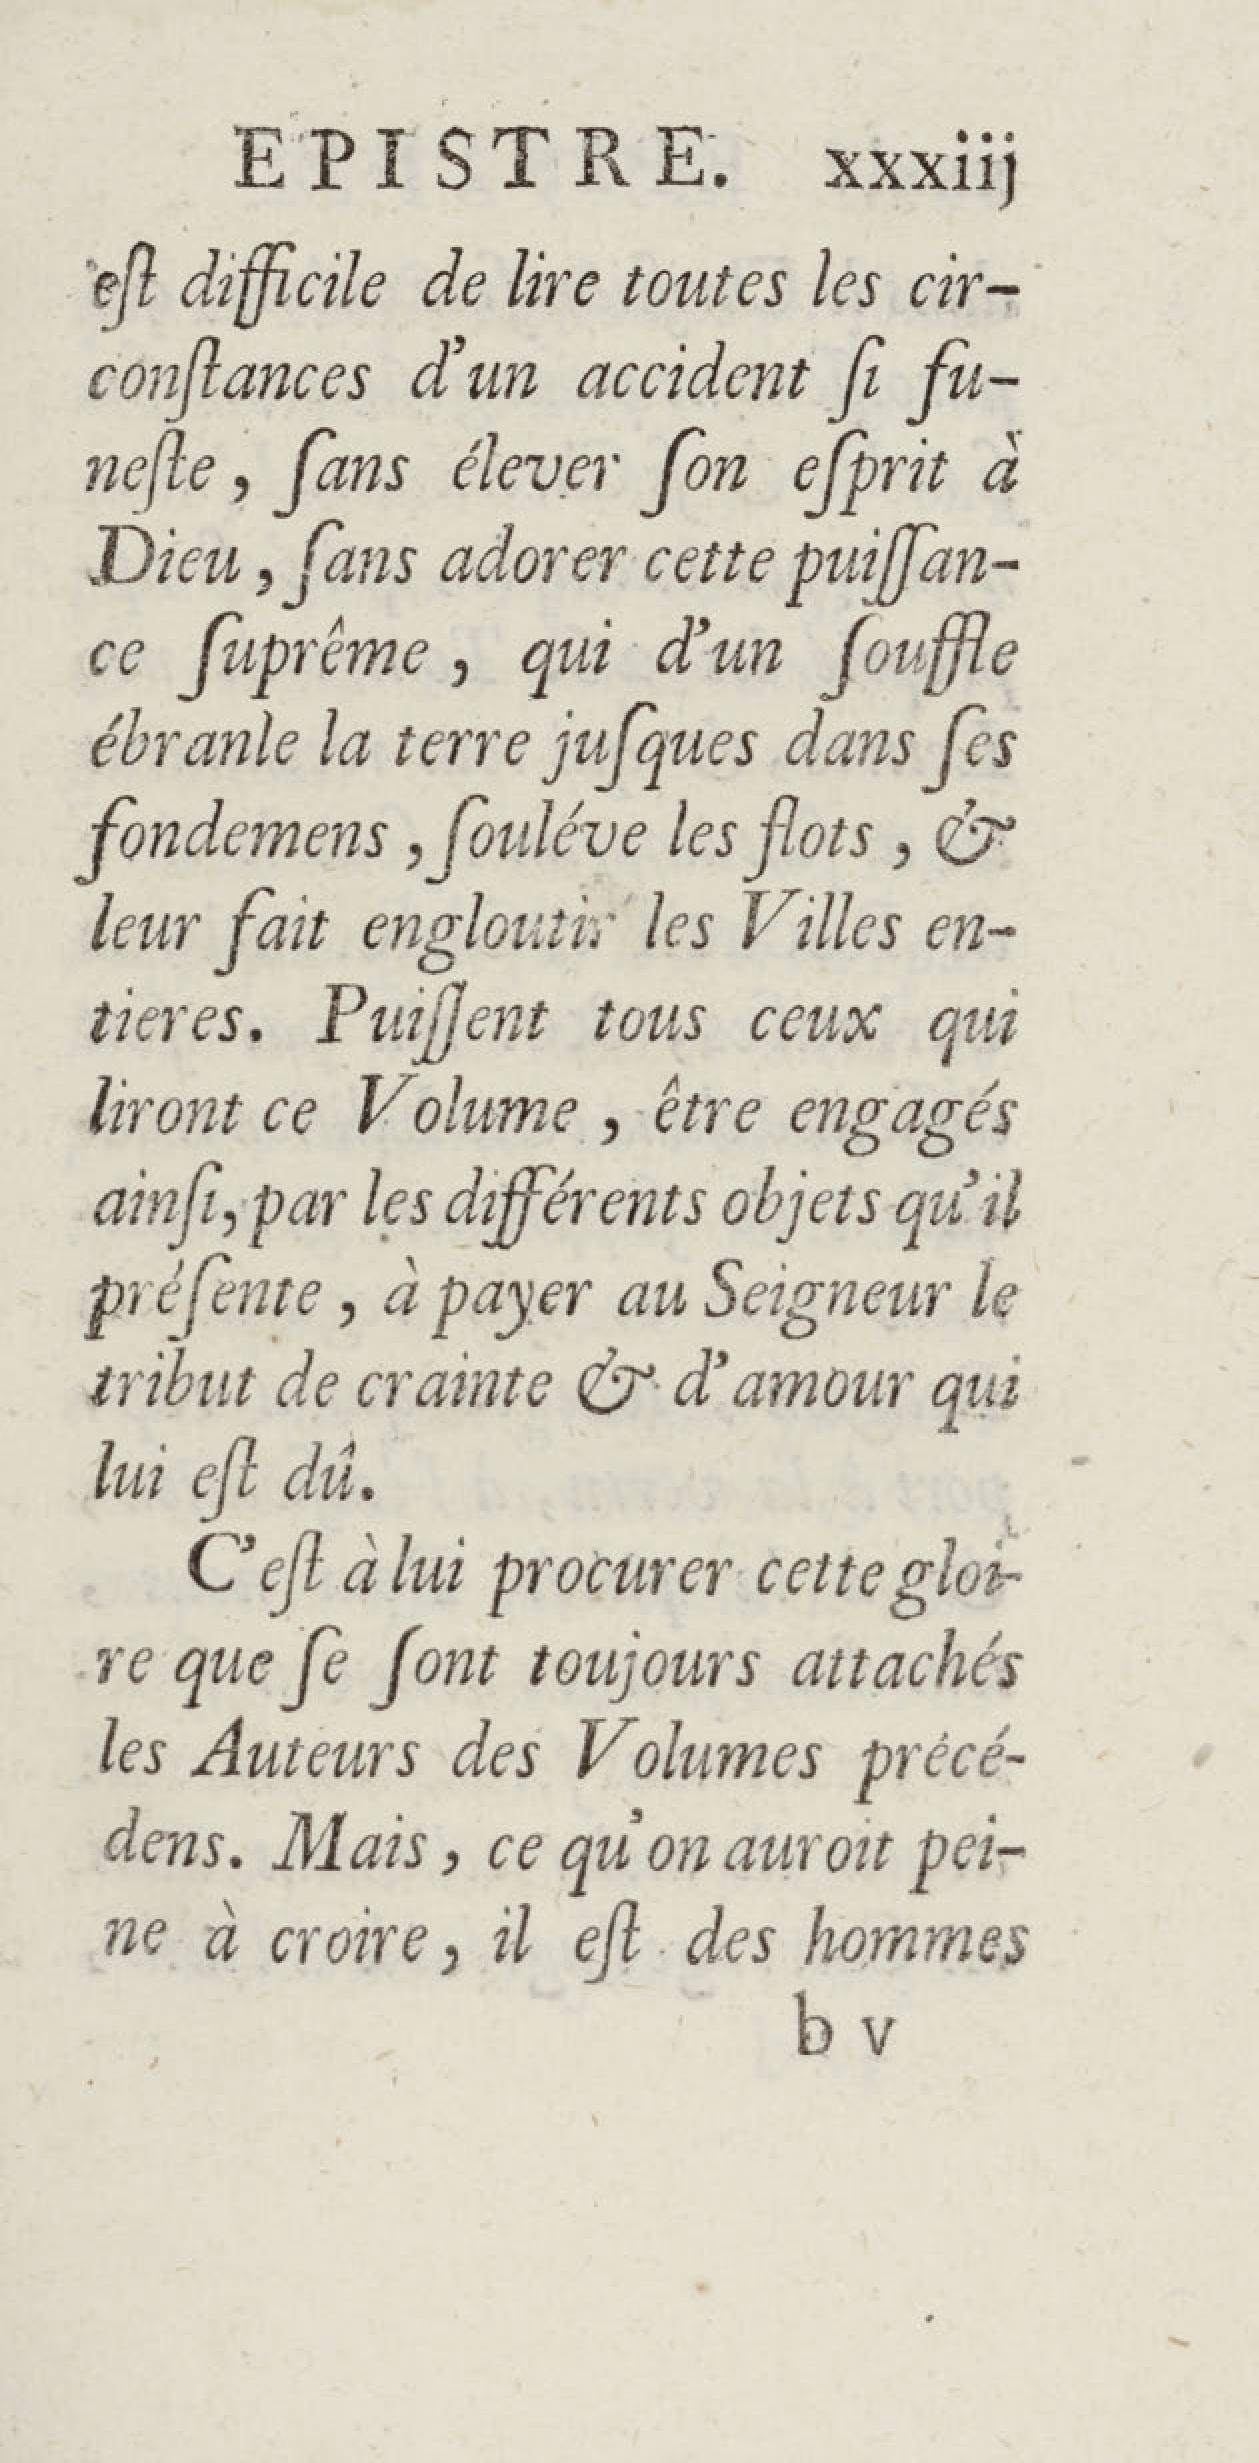 EPISTRE. xxxiij
eſt difficile de lire toutes les cir-
conſtances d'un accident ſi fu-
neſte, ſans élever ſon eſprit à
Dieu, ſans adorer cette puiſſan-
ce ſuprême, qui d'un ſouffle
ébranle la terre juſques dans ſes
fondemens, ſouléve les flots, &
leur fait engloutir les Villes en-
tieres. Puiſſent tous ceux qui
liront ce Volume, être engagés
ainſi, par les différents objets qu'il
préſente, à payer au Seigneur le
tribut de crainte & d'amour qui
lui eſt dû.
C'eſt à lui procurer cette gloi-
re que ſe ſont toujours attachés
les Auteurs des Volumes précé-
dens. Mais, ce qu'on auroit pei-
ne à croire, il eſt des hommes
b v